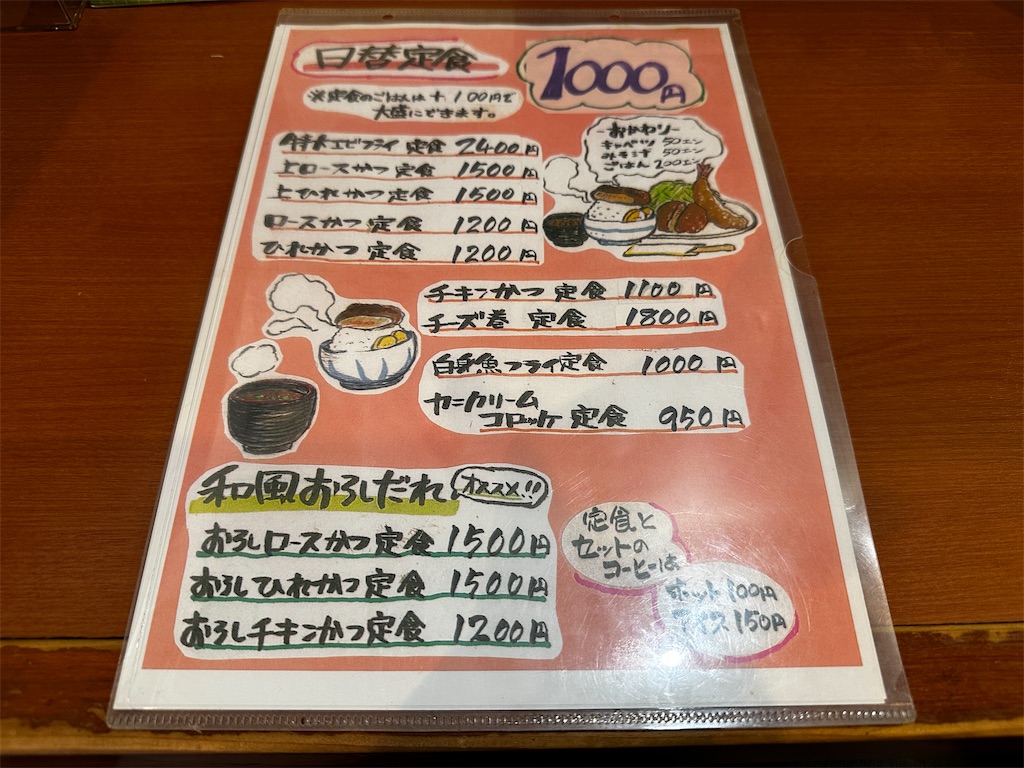 日替定食 1000円
※定食のごはんは+100円で
大盛にできます。
特大エビフライ 定食 2400円
上ロースかつ 定食 1500円
上ひれかつ 定食 1500円
ロースかつ 定食 1200円
ひれかつ 定食 1200円
-おかわり-
キャベツ 50エン
みそ汁 50エン
ごはん 200エン
チキンかつ 定食 1100円
チーズ巻 定食 1800円
白身魚フライ定食 1000円
カニクリーム
コロッケ 定食 950円
和風おろしだれ オススメ!!
おろしロースかつ定食 1500円
おろしひれかつ定食 1500円
おろしチキンかつ定食 1200円
定食と
セットの
コーヒーは
ホット100円
アイス150円